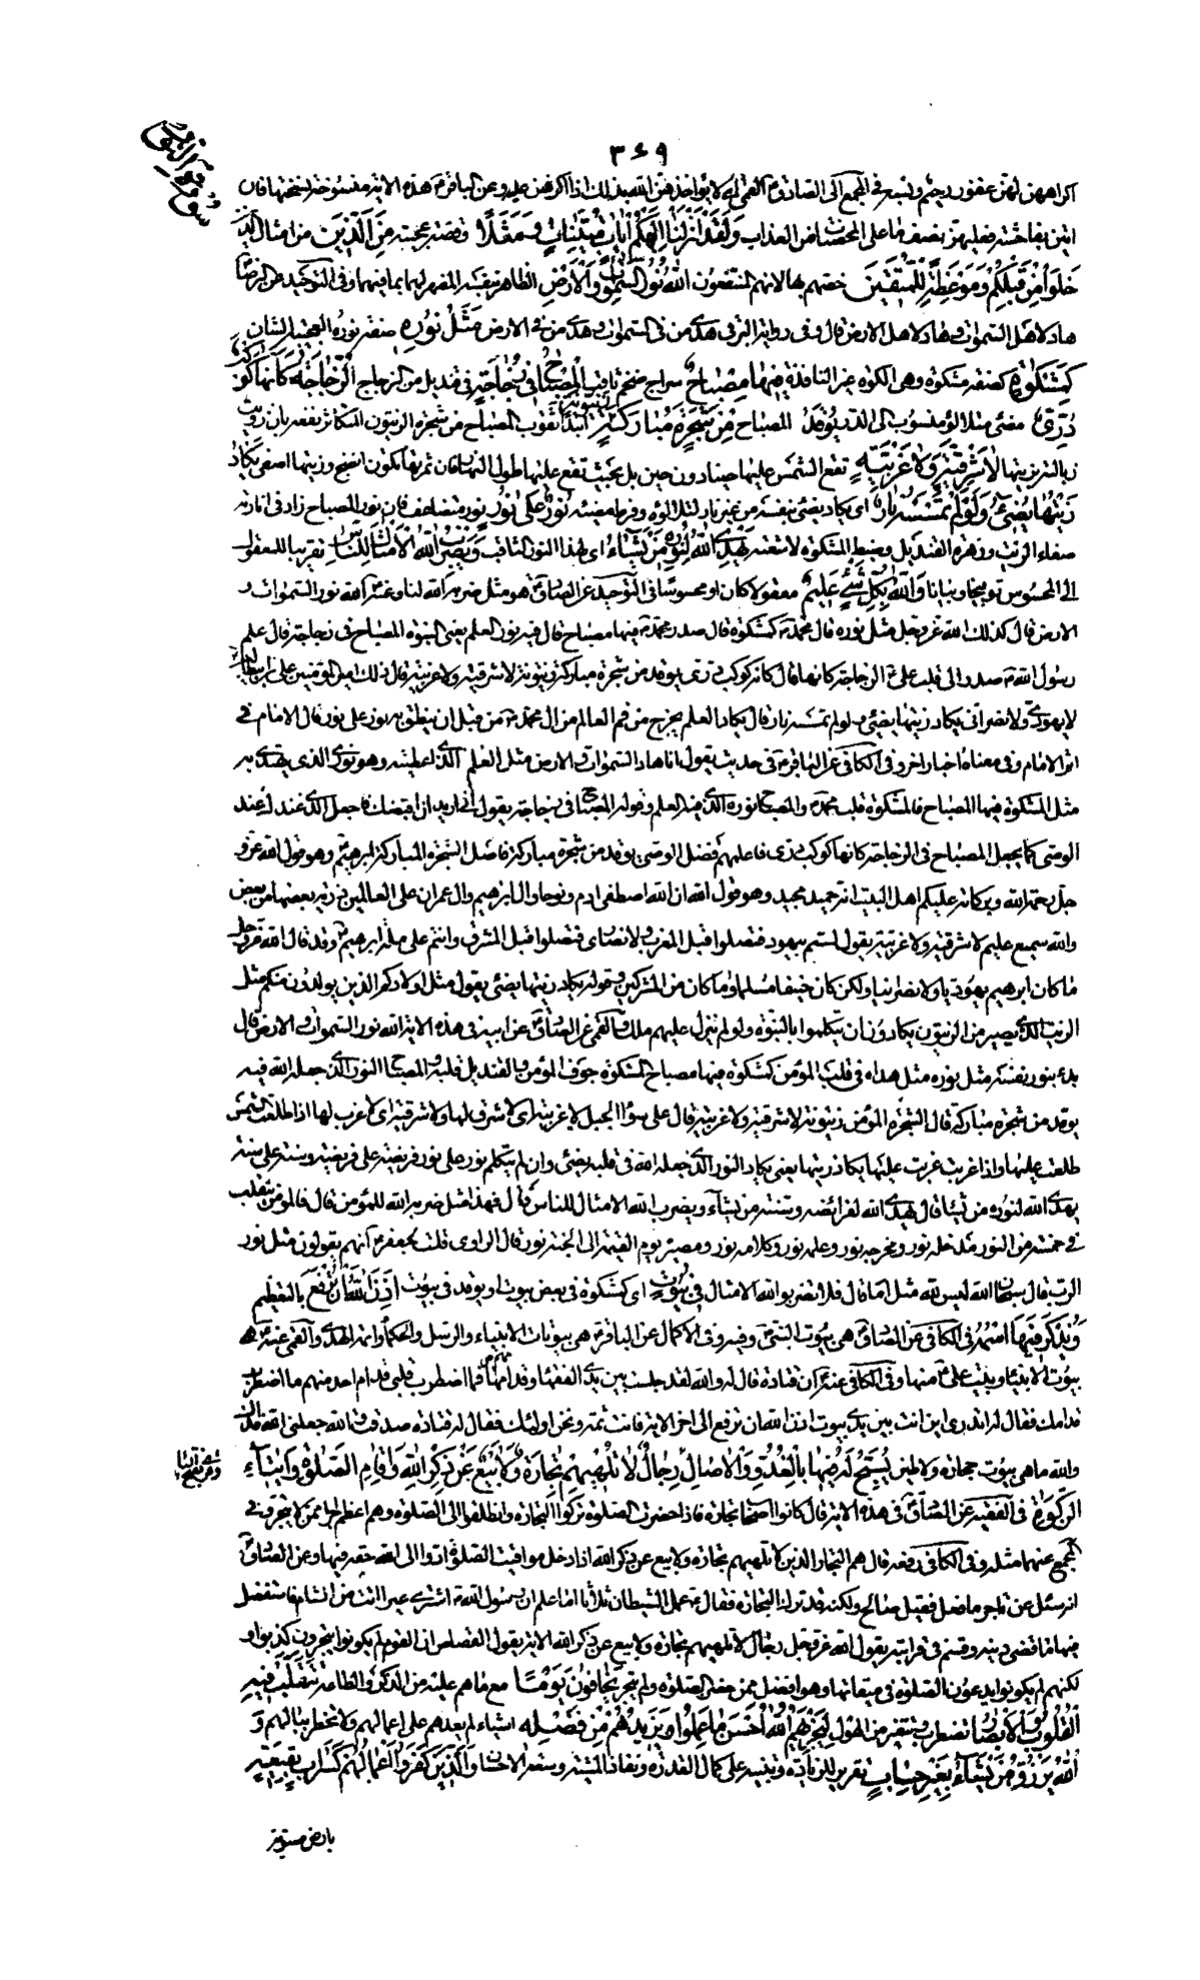 ٣٤٩
سورة النور
اكراههن لهن غفور رحيم ونسبه في المجمع الى الصادق القمي اي لا يؤاخذهن الله بذلك اذا اكرهن عليه وعن الباقر هذه الاية منسوخة نسختها فان
اتين بفاحشة فعليهن نصف ما على المحصنات من العذاب وَلَقَدْ اَنْزَلْنَا اِلَيْكُمْ اٰيَاتٍ مُبَيِّنَاتٍ وَمَثَلًا وقصة عجيبة مِنَ الَّذِينَ من امثال الذين
خَلَوْا مِنْ قَبْلِكُمْ وَمَوْعِظَةً لِلْمُتَّقِينَ خصهم بها لانهم المنتفعون اَللّٰهُ نُورُ السَّمٰوَاتِ وَالْاَرْضِ الظاهر بنفسه المظهر لهما بما فيهما وفي التوحيد عن الرضا
هاد لاهل السموات وهاد لاهل الارض قال وفي رواية البرقي هدى من في السموات وهدى من في الارض مَثَلُ نُورِهِ صفة نوره العجيبة الشان
كَمِشْكٰوةٍ كصفة مشكوة وهي الكوة غير النافذة فِيهَا مِصْبَاحٌ سراج ضخم ثاقب اَلْمِصْبَاحُ فِي زُجَاجَةٍ في قنديل من الزجاج اَلزُّجَاجَةُ كَاَنَّهَا كَوْكَبٌ
دُرِّيٌّ مضئ متلالؤ منسوب الى الدر يُوقَدُ المصباح مِنْ شَجَرَةٍ مُبَارَكَةٍ زَيْتُونَةٍ ابتدا ثقوب المصباح من شجرة الزيتون المتكاثر نفعه بان رويت
ذبالته بزيتها لَا شَرْقِيَّةٍ وَلَا غَرْبِيَّةٍ تقع الشمس عليها حينا دون حين بل بحيث تقع عليها طول النهار فان ثمرتها تكون انضج وزيتها اصفى يَكَادُ
زَيْتُهَا يُضِيءُ وَلَوْ لَمْ تَمْسَسْهُ نَارٌ اي يكاد يضئ بنفسه من غير نار لتلالؤه وفرط وميضه نُورٌ عَلٰى نُورٍ نور متضاعف فان نور المصباح زاد في انارته
صفاء الزيت وزهرة القنديل وضبط المشكوة لاشعته يَهْدِي اللّٰهُ لِنُورِهِ مَنْ يَشَاءُ اي لهذا النور الثاقب وَيَضْرِبُ اللّٰهُ الْاَمْثَالَ لِلنَّاسِ تقريبا للمعقول
الى المحسوس توضيحا وبيانا وَاللّٰهُ بِكُلِّ شَيْءٍ عَلِيمٌ معقولا كان او محسوسا في التوحيد عن الصادق هو مثل ضربه الله لنا وعنه الله نور السموات و
الارض قال كذلك الله عز وجل مثل نوره قال محمد كمشكوة قال صدر محمد فيها مصباح قال فيه نور العلم يعني النبوة المصباح في زجاجة قال علم
رسول الله صدر الى قلب علي الزجاجة كانها قال كانه كوكب دري يوقد من شجرة مباركة زيتونة لا شرقية ولا غربية قال ذلك امير المؤمنين علي بن ابيطالب
لا يهودي ولا نصراني يكاد زيتها يضئ ولو لم تمسسه نار قال يكاد العلم يخرج من فم العالم من ال محمد من قبل ان ينطق به نور على نور قال الامام في
اثر الامام وفي معناه اخبار اخر وفي الكافي عن الباقر في حديث يقول انا هاد السموات والارض مثل العلم الذي اعطيته وهو نوري الذي يهتدى به
مثل المشكوة فيها المصباح فالمشكوة قلب محمد والمصباح نوره الذي فيه العلم وقوله المصباح في زجاجة يقول اني اريد ان اقبضك فاجعل الذي عندك عند
الوصي كما يجعل المصباح في الزجاجة كانها كوكب دري فاعلمهم فضل الوصي يوقد من شجرة مباركة فاصل الشجرة المباركة ابرهيم وهو قول الله عز و
جل رحمة الله وبركاته عليكم اهل البيت انه حميد مجيد وهو قول الله ان الله اصطفى ادم ونوحا وال ابرهيم وال عمران على العالمين ذرية بعضها من بعض
والله سميع عليم لا شرقية ولا غربية يقول لستم بيهود فتصلوا قبل المغرب ولا نصارى فتصلوا قبل المشرق وانتم على ملة ابرهيم وقد قال الله عز وجل
ما كان ابرهيم يهوديا ولا نصرانيا ولكن كان حنيفا مسلما وما كان من المشركين وقوله يكاد زيتها يضئ يقول مثل اولادكم الذين يولدون منكم مثل
الزيت الذي يعصر من الزيتون يكادون ان يتكلموا بالنبوة ولو لم ينزل عليهم ملك والقمي عن الصادق عن ابيه في هذه الاية الله نور السموات والارض قال
بدء بنور نفسه مثل نوره مثل هداه في قلب المؤمن كمشكوة فيها مصباح المشكوة جوف المؤمن والقنديل قلبه والمصباح النور الذي جعله الله فيه
يوقد من شجرة مباركة قال الشجرة المؤمن زيتونة لا شرقية ولا غربية قال على سواء الجبل لا غربية اي لا شرق لها ولا شرقية اي لا غرب لها اذا طلعت الشمس
طلعت عليها واذا غربت غربت عليها يكاد زيتها يعني يكاد النور الذي جعله الله في قلبه يضئ وان لم يتكلم نور على نور فريضة على فريضة وسنة على سنة
يهدي الله لنوره من يشاء قال يهدي الله لفرائضه وسننه من يشاء ويضرب الله الامثال للناس قال فهذا مثل ضربه الله للمؤمن قال فالمؤمن يتقلب
في خمسة من النور مدخله نور ومخرجه نور وعلمه نور وكلامه نور ومصيره يوم القيمة الى الجنة نور قال الراوي قلت لجعفر انهم يقولون مثل نور
الرب قال سبحان الله ليس لله مثل اما قال فلا تضربوا لله الامثال فِي بُيُوتٍ اي كمشكوة في بعض بيوت او يوقد في بيوت اَذِنَ اللّٰهُ اَنْ تُرْفَعَ بالتعظيم
وَيُذْكَرَ فِيهَا اسْمُهُ في الكافي عن الصادق هي بيوت النبي وفيه وفي الاكمال عن الباقر هي بيوتات الانبياء والرسل والحكماء وائمة الهدى والقمي عنه هي
بيوت الانبياء وبيت علي منها وفي الكافي عنه ان قتادة قال له والله لقد جلست بين يدي الفقهاء وقدامهم فما اضطرب قلبي قدام احد منهم ما اضطرب
قدامك فقال له اتدري اين انت بين يدي بيوت اذن الله ان ترفع الى اخر الاية فانت ثمه ونحن اولئك فقال له قتادة صدقت والله جعلني الله فداك
والله ما هي بيوت حجارة ولا طين يُسَبِّحُ لَهُ فِيهَا بِالْغُدُوِّ وَالْاٰصَالِ رِجَالٌ لَا تُلْهِيهِمْ تِجَارَةٌ وَلَا بَيْعٌ عَنْ ذِكْرِ اللّٰهِ وَاِقَامِ الصَّلٰوةِ وَاِيتَاءِ
الزَّكٰوةِ في الفقيه عن الصادق في هذه الاية قال كانوا اصحاب تجارة فاذا حضرت الصلوة تركوا التجارة وانطلقوا الى الصلوة وهم اعظم اجرا ممن لا يتجر وفي
المجمع عنهما مثله وفي الكافي رفعه قال هم التجار الذين لا تلهيهم تجارة ولا بيع عن ذكر الله اذا دخل مواقيت الصلوة ادوا الى الله حقه فيها وعن الصادق
انه سئل عن تاجر ما فعل فقيل صالح ولكنه قد ترك التجارة فقال عمل الشيطان ثلاثا اما علم ان رسول الله اشترى عيرا اتت من الشام فاستفضل
فيها ما قضى دينه وقسم في قرابته يقول الله عز وجل رجال لا تلهيهم تجارة ولا بيع عن ذكر الله الاية يقول القصاص ان القوم لم يكونوا يتجرون كذبوا و
لكنهم لم يكونوا يدعون الصلوة في ميقاتها وهو افضل ممن حضر الصلوة ولم يتجر يَخَافُونَ يَوْمًا مع ما هم عليه من الذكر والطاعة تَتَقَلَّبُ فِيهِ
الْقُلُوبُ وَالْاَبْصَارُ تضطرب وتتغير من الهول لِيَجْزِيَهُمُ اللّٰهُ اَحْسَنَ مَا عَمِلُوا وَيَزِيدَهُمْ مِنْ فَضْلِهِ اشياء لم يعدهم على اعمالهم ولا تخطر ببالهم وَ
اللّٰهُ يَرْزُقُ مَنْ يَشَاءُ بِغَيْرِ حِسَابٍ تقرير للزيادة وتنبيه على كمال القدرة ونفاذ المشية وسعة الاحسان وَالَّذِينَ كَفَرُوا اَعْمَالُهُمْ كَسَرَابٍ بِقِيعَةٍ
بارض مستوية